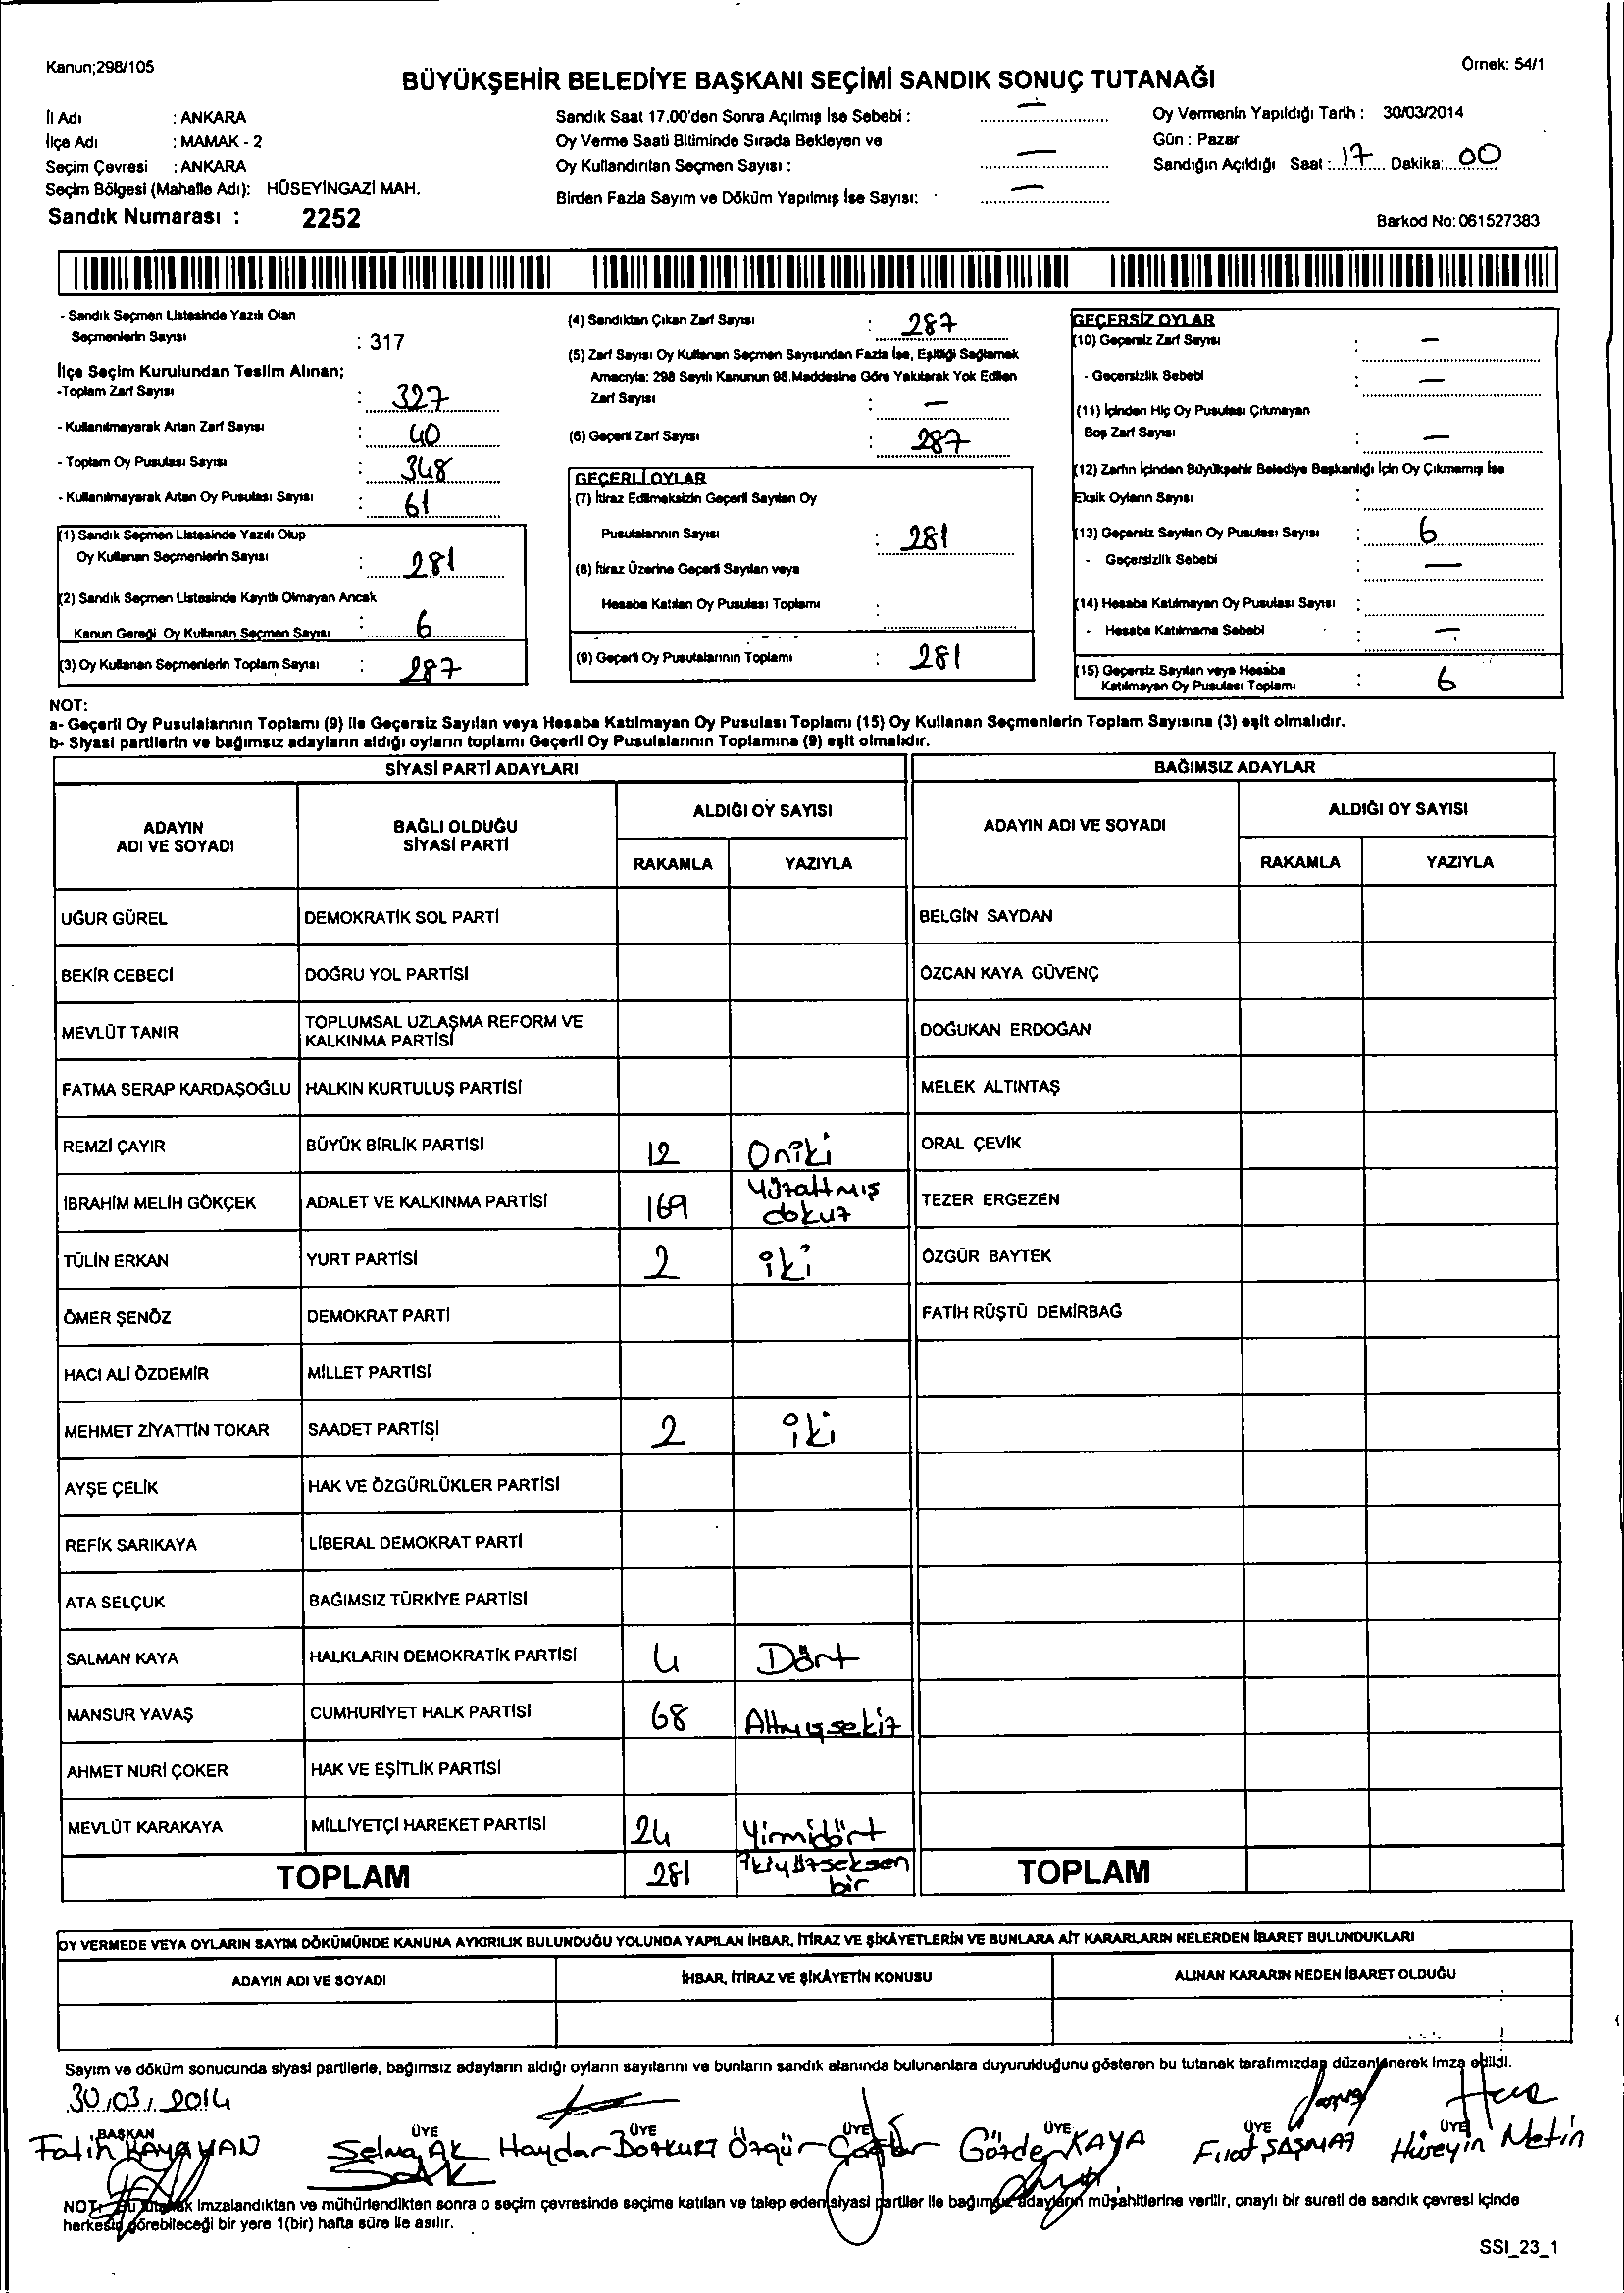 Kanun;298/105
Örnek: 54/1
BÜYÜKŞEHİR BELEDİYE BAŞKANI SEÇİMİ SANDIK SONUÇ TUTANAĞI
İl Adı : ANKARA
İlçe Adı : MAMAK - 2
Seçim Çevresi : ANKARA
Seçim Bölgesi (Mahalle Adı): HÜSEYİNGAZİ MAH.
Sandık Numarası : 2252
Sandık Saat 17.00'den Sonra Açılmış İse Sebebi : —
Oy Verme Saati Bitiminde Sırada Bekleyen ve
Oy Kullandırılan Seçmen Sayısı : —
Birden Fazla Sayım ve Döküm Yapılmış İse Sayısı: —
Oy Vermenin Yapıldığı Tarih : 30/03/2014
Gün : Pazar
Sandığın Açıldığı Saat : 17 Dakika: 00
Barkod No: 061527383
- Sandık Seçmen Listesinde Yazılı Olan
Seçmenlerin Sayısı : 317
İlçe Seçim Kurulundan Teslim Alınan;
-Toplam Zarf Sayısı : 327
- Kullanılmayarak Artan Zarf Sayısı : 40
- Toplam Oy Pusulası Sayısı : 348
- Kullanılmayarak Artan Oy Pusulası Sayısı : 61
(1) Sandık Seçmen Listesinde Yazılı Olup
Oy Kullanan Seçmenlerin Sayısı : 281
(2) Sandık Seçmen Listesinde Kayıtlı Olmayan Ancak
Kanun Gereği Oy Kullanan Seçmen Sayısı : 6
(3) Oy Kullanan Seçmenlerin Toplam Sayısı : 287
(4) Sandıktan Çıkan Zarf Sayısı : 287
(5) Zarf Sayısı Oy Kullanan Seçmen Sayısından Fazla İse, Eşitliği Sağlamak
Amacıyla; 298 Sayılı Kanunun 98.Maddesine Göre Yakılarak Yok Edilen
Zarf Sayısı : —
(6) Geçerli Zarf Sayısı : 287
GEÇERLİ OYLAR
(7) İtiraz Edilmeksizin Geçerli Sayılan Oy
Pusulalarının Sayısı : 281
(8) İtiraz Üzerine Geçerli Sayılan veya
Hesaba Katılan Oy Pusulası Toplamı :
(9) Geçerli Oy Pusulalarının Toplamı : 281
GEÇERSİZ OYLAR
(10) Geçersiz Zarf Sayısı : —
- Geçersizlik Sebebi : —
(11) İçinden Hiç Oy Pusulası Çıkmayan
Boş Zarf Sayısı : —
(12) Zarfın İçinden Büyükşehir Belediye Başkanlığı İçin Oy Çıkmamış İse
Eksik Oyların Sayısı :
(13) Geçersiz Sayılan Oy Pusulası Sayısı : 6
- Geçersizlik Sebebi : —
(14) Hesaba Katılmayan Oy Pusulası Sayısı :
- Hesaba Katılmama Sebebi : —
(15) Geçersiz Sayılan veya Hesaba
Katılmayan Oy Pusulası Toplamı : 6
NOT:
a- Geçerli Oy Pusulalarının Toplamı (9) ile Geçersiz Sayılan veya Hesaba Katılmayan Oy Pusulası Toplamı (15) Oy Kullanan Seçmenlerin Toplam Sayısına (3) eşit olmalıdır.
b- Siyasi partilerin ve bağımsız adayların aldığı oyların toplamı Geçerli Oy Pusulalarının Toplamına (9) eşit olmalıdır.
SİYASİ PARTİ ADAYLARI BAĞIMSIZ ADAYLAR
ADAYIN
ADI VE SOYADI
BAĞLI OLDUĞU
SİYASİ PARTİ
ALDIĞI OY SAYISI
RAKAMLA YAZIYLA
ADAYIN ADI VE SOYADI
ALDIĞI OY SAYISI
RAKAMLA YAZIYLA
UĞUR GÜREL DEMOKRATİK SOL PARTİ BELGİN SAYDAN
BEKİR CEBECİ DOĞRU YOL PARTİSİ ÖZCAN KAYA GÜVENÇ
MEVLÜT TANIR TOPLUMSAL UZLAŞMA REFORM VE
KALKINMA PARTİSİ DOĞUKAN ERDOĞAN
FATMA SERAP KARDAŞOĞLU HALKIN KURTULUŞ PARTİSİ MELEK ALTINTAŞ
REMZİ ÇAYIR BÜYÜK BİRLİK PARTİSİ 12 Oniki ORAL ÇEVİK
İBRAHİM MELİH GÖKÇEK ADALET VE KALKINMA PARTİSİ 169 Yüzaltmış
dokuz TEZER ERGEZEN
TÜLİN ERKAN YURT PARTİSİ 2 iki ÖZGÜR BAYTEK
ÖMER ŞENÖZ DEMOKRAT PARTİ FATİH RÜŞTÜ DEMİRBAĞ
HACI ALİ ÖZDEMİR MİLLET PARTİSİ
MEHMET ZİYATTİN TOKAR SAADET PARTİSİ 2 iki
AYŞE ÇELİK HAK VE ÖZGÜRLÜKLER PARTİSİ
REFİK SARIKAYA LİBERAL DEMOKRAT PARTİ
ATA SELÇUK BAĞIMSIZ TÜRKİYE PARTİSİ
SALMAN KAYA HALKLARIN DEMOKRATİK PARTİSİ 4 Dört
MANSUR YAVAŞ CUMHURİYET HALK PARTİSİ 68 Altmışsekiz
AHMET NURİ ÇOKER HAK VE EŞİTLİK PARTİSİ
MEVLÜT KARAKAYA MİLLİYETÇİ HAREKET PARTİSİ 24 Yirmidört
TOPLAM 281 İkiyüzseksen
bir TOPLAM
OY VERMEDE VEYA OYLARIN SAYIM DÖKÜMÜNDE KANUNA AYKIRILIK BULUNDUĞU YOLUNDA YAPILAN İHBAR, İTİRAZ VE ŞİKÂYETLERİN VE BUNLARA AİT KARARLARIN NELERDEN İBARET BULUNDUKLARI
ADAYIN ADI VE SOYADI İHBAR, İTİRAZ VE ŞİKÂYETİN KONUSU ALINAN KARARIN NEDEN İBARET OLDUĞU
Sayım ve döküm sonucunda siyasi partilerle, bağımsız adayların aldığı oyların sayılarını ve bunların sandık alanında bulunanlara duyurulduğunu gösteren bu tutanak tarafımızdan düzenlenerek imza edildi.
30/03/2014
BAŞKAN ÜYE ÜYE ÜYE ÜYE ÜYE ÜYE
Fatih KAYAYAN Selma AK Haydar BOZKURT Özgür Gözde KAYA Fırat ŞAŞMAZ Hüseyin Metin
NOT: Bu tutanak imzalandıktan ve mühürlendikten sonra o seçim çevresinde seçime katılan ve talep eden siyasi partiler ile bağımsız adayların müşahitlerine verilir, onaylı bir sureti de sandık çevresi içinde
herkesin görebileceği bir yere 1(bir) hafta süre ile asılır.
SSI_23_1